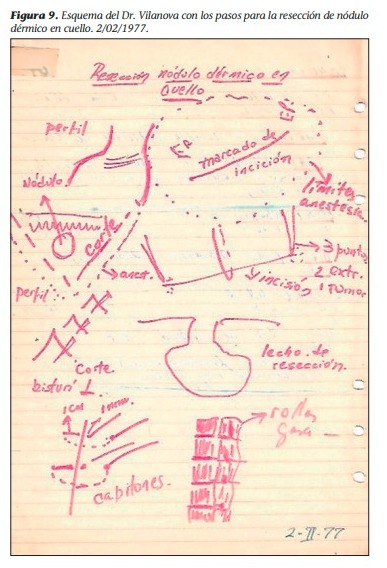 Figura 9. Esquema del Dr. Vilanova con los pasos para la resección de nódulo
dérmico en cuello. 2/02/1977.
Resección nódulo dérmico en
Cuello
perfil
marcado de
incición
Nódulo
corte
límites
anestesia
perfil
anest.
incisión
3 puntos
2 extr.
1 tumor
corte
bisturí ⊥
lecho de
resección.
1 cm
1 mm
capitones.
rollo
gasa
2-II-77